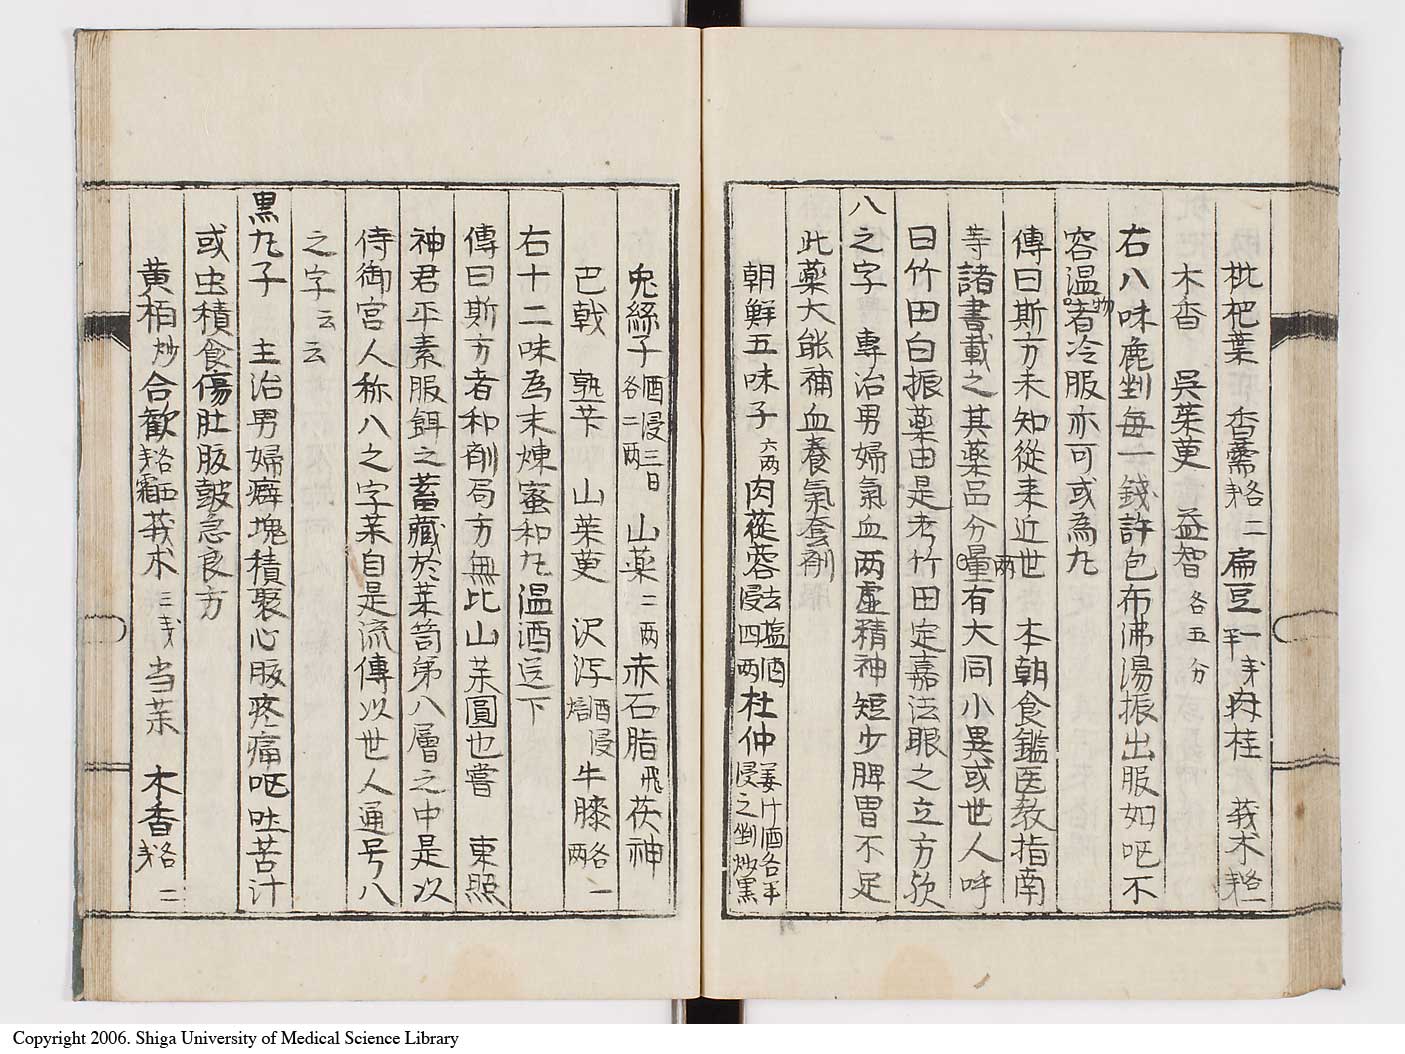 枇杷葉　香薷各二戔　扁豆一戔半　肉桂　莪术各一戔
木香　呉茱萸　益智各五分
右八味鹿剉毎一錢許包布沸湯振出服如呕不
容温物者冷服亦可或為丸
傳曰斯方未知從来近世　本朝食鑑医教指南
䓁諸書載之其薬品分量両有大同小異或世人呼
曰竹田白振薬由是考竹田定嘉法眼之立方欤
八之字　専治男婦氣血両虚精神短少脾胃不足
此薬大能補血養氣套剤
朝鮮五味子六両　肉蓯蓉去塩酒浸四両　杜仲姜汁酒各半浸之剉炒黒
兎絲子酒浸三日各二両　山薬二両　赤石脂飛　茯神
巴戟　熟芐　山茱萸　沢泻酒浸　牛膝各一両
右十二味為末煉蜜和丸温酒送下
傳曰斯方者和剤局方無比山茱圓也嘗　東照
神君平素服餌之蓄藏於茱笥第八層之中是以
侍御宮人称八之字茱自是流傳以世人通号八
之字云云
黒丸子　主治男婦癖塊積聚心腹疼痛呕吐苦汁
或虫積食傷肚腹皷急良方
黄柏炒　合歓霜各四戔　莪术三戔　当茱　木香各二戔